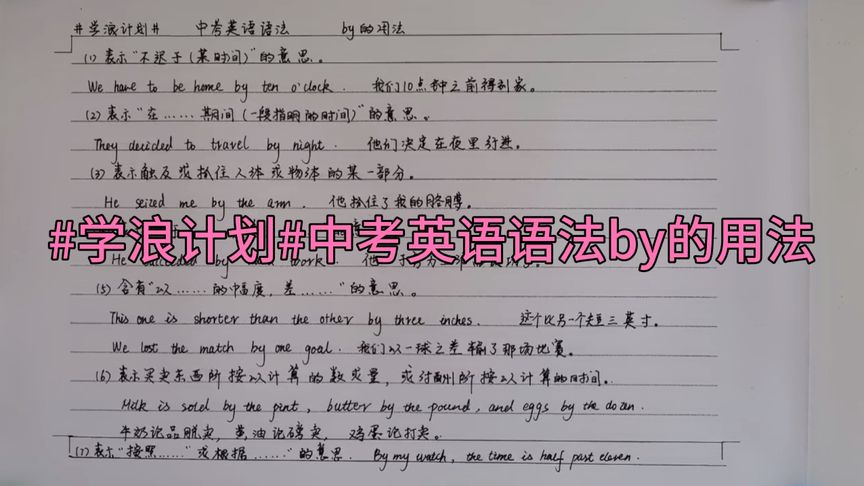 #学浪计划# 中考英语语法 by的用法
(1) 表示"不迟于(某时间)"的意思。
We have to be home by ten o'clock. 我们10点钟之前得到家。
(2) 表示"在……期间(一段指明的时间)"的意思。
They decided to travel by night. 他们决定在夜里行进。
(3) 表示触及或抓住人体或物体的某一部分。
He seized me by the arm. 他抓住了我的胳膊。
#学浪计划#中考英语语法by的用法
He succeeded by work. 他
(5) 含有"以……的幅度,差……"的意思。
This one is shorter than the other by three inches. 这个比另一个短三英寸。
We lost the match by one goal. 我们以一球之差输了那场比赛。
(6) 表示买卖东西所按以计算的数或量,或付酬所按以计算的时间。
Milk is sold by the pint, butter by the pound, and eggs by the dozen.
牛奶论品脱卖,黄油论磅卖,鸡蛋论打卖。
(7) 表示"按照……"或根据……"的意思. By my watch, the time is half past eleven.